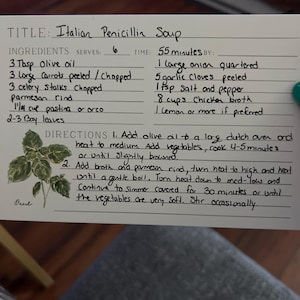 TITLE: Italian Penicillin Soup
INGREDIENTS SERVES: 6 TIME: 55 minutes BY:
3 Tbsp Olive oil 1 Large onion quartered
3 Large Carrots peeled / chopped 5 garlic Cloves peeled
3 celery Stalks Chopped 1 Tbsp Salt and pepper
parmesan rind 8 cups Chicken broth
1 1/4 cup pastina or orzo 1 Lemon or more if preferred
2-3 Bay leaves
DIRECTIONS 1. Add olive oil to a large dutch oven and
heat to medium. Add vegetables, cook 4-5 minutes
or until Slightly browned.
2. Add broth and parmesan rind, turn heat to high and heat
until a gentle boil. Turn heat down to med-low and
Continue to Simmer covered for 30 minutes or until
the vegetables are very soft. Stir occasionally
Basil